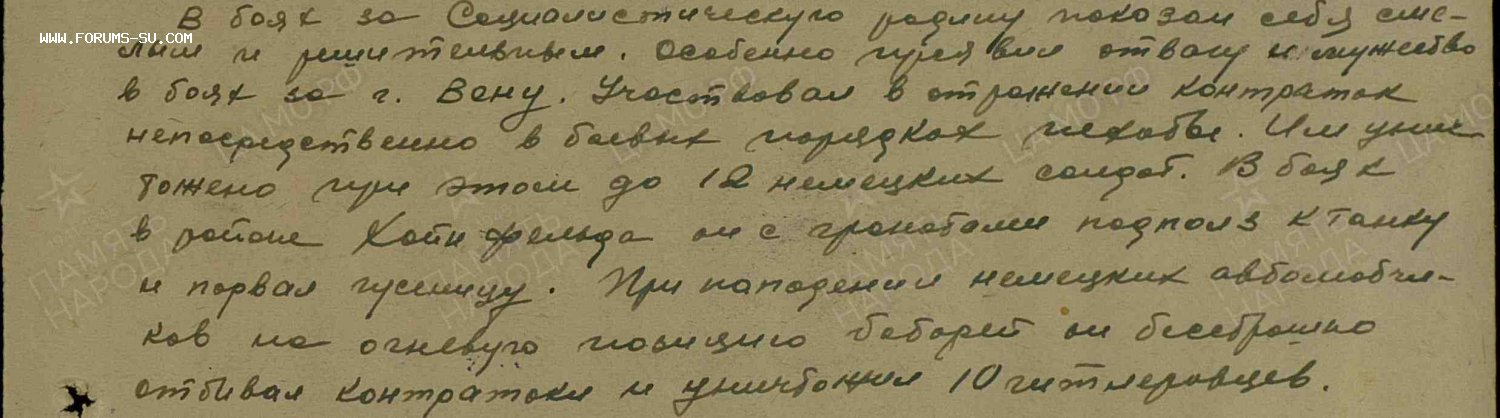 В боях за Социалистическую родину показал себя сме-
WWW.FORUMS-SU.COM
лым и решительным. Особенно проявил отвагу и мужество
в боях за г. Вену. Участвовал в отражении контратак
непосредственно в боевых порядках пехоты. Им унич
тожено при этом до 12 немецких солдат. В боях
в районе Хойнфельда он с гранатами подполз к танку
и порвал гусеницу. При нападении немецких автоматчи-
ков на огневую позицию батарей он бесстрашно
отбивал контратаки и уничтожил 10 гитлеровцев.
ПАМЯТЬ НАРОДА
ЦАМО РФ
ПАМЯТЬ НАРОДА
ЦАМО РФ
ПАМЯТЬ НАРОДА
ЦАМО РФ